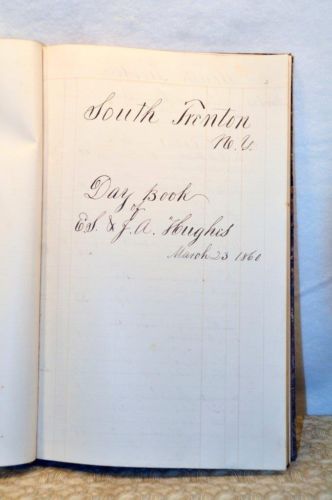 South Trenton
N.Y.
Day Book
of
E.S. & J.A. Hughes
March 23 1860